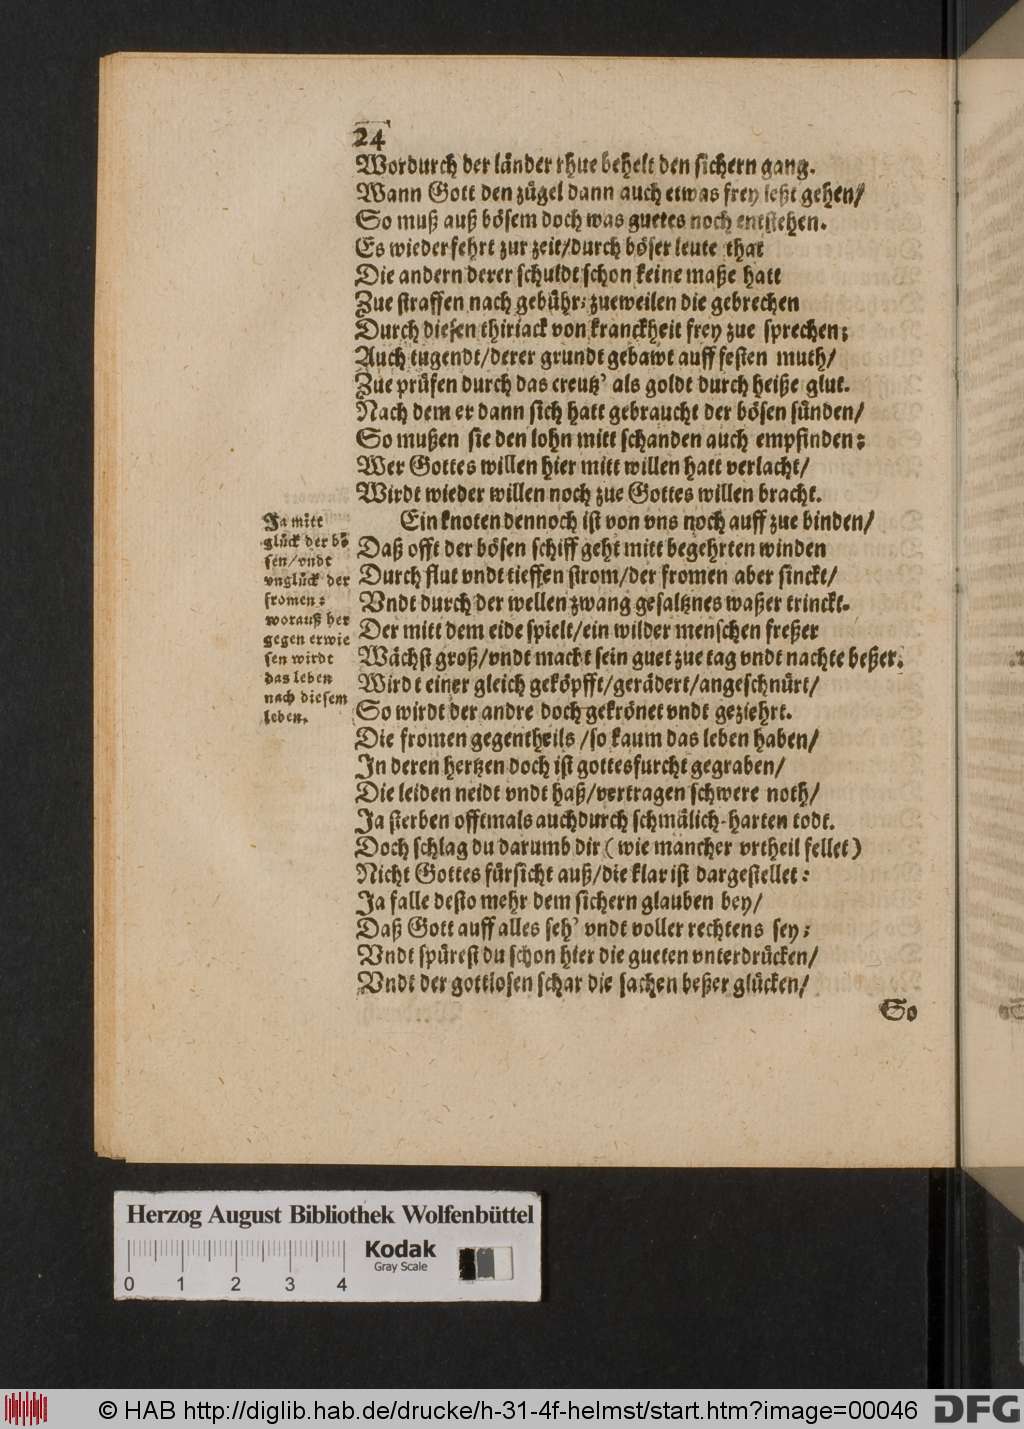 24
Wordurch der länder rhue behelt den sichern gang.
Wann Gott den zügel dann auch etwas frey leßt gehen/
So muß auß bösem doch was guetes noch entstehen.
Es wiederfehrt zur zeit/durch böser leute that
Die andern derer schuldt schon keine maße hatt
Zue straffen nach gebühr; zueweilen die gebrechen
Durch diesen thiriack von kranckheit frey zue sprechen;
Auch tugendt/derer grundt gebawt auff festen muth/
Zue prüfen durch das creutz' als goldt durch heiße glut.
Nach dem er dann sich hatt gebraucht der bösen sünden/
So mußen sie den lohn mitt schanden auch empfinden:
Wer Gottes willen hier mitt willen hatt verlacht/
Wirdt wieder willen noch zue Gottes willen bracht.
Ein knoten dennoch ist von vns noch auff zue binden/
Daß offt der bösen schiff geht mitt begehrten winden
Durch flut vndt tieffen strom/der fromen aber sinckt/
Vndt durch der wellen zwang gesaltznes waßer trinckt.
Der mitt dem eide spielt/ein wilder menschen freßer
Wächst groß/vndt macht sein guet zue tag vndt nachte beßer.
Wirdt einer gleich geköpfft/gerädert/angeschnürt/
So wirdt der andre doch gekrönet vndt geziehrt.
Die fromen gegentheils/so kaum das leben haben/
In deren hertzen doch ist gottesfurcht gegraben/
Die leiden neidt vndt haß/vertragen schwere noth/
Ja sterben offtmals auchdurch schmälich-harten todt.
Doch schlag du darumb dir (wie mancher vrtheil fellet)
Nicht Gottes fürsicht auß/die klar ist dargestellet:
Ja falle desto mehr dem sichern glauben bey/
Daß Gott auff alles seh' vndt voller rechtens sey;
Vndt spürest du schon hier die gueten vnterdrücken/
Vndt der gottlosen schar die sachen beßer glücken/
So
Ja mitt
glück der bö
sen/vndt
vnglück der
fromen:
worauß her
gegen erwie
sen wirdt
das leben
nach diesem
leben.
Herzog August Bibliothek Wolfenbüttel
Kodak
Gray Scale
0 1 2 3 4
© HAB http://diglib.hab.de/drucke/h-31-4f-helmst/start.htm?image=00046
DFG